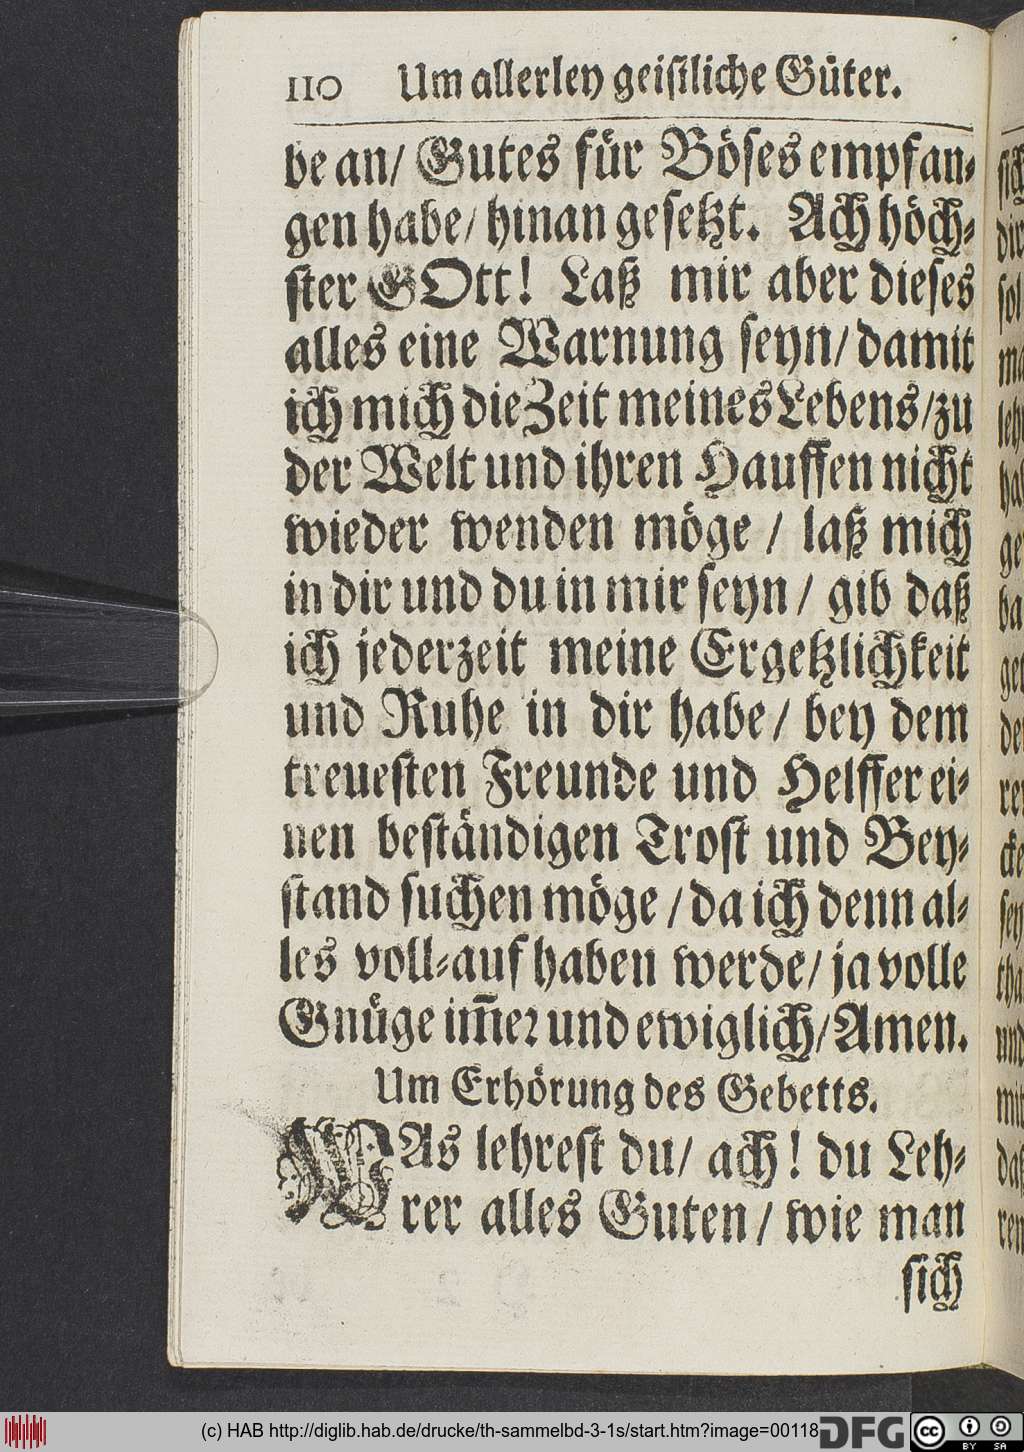 110 Um allerley geistliche Güter.
be an/ Gutes für Böses empfan-
gen habe/ hinan gesetzt. Ach höch-
ster GOtt! Laß mir aber dieses
alles eine Warnung seyn/ damit
ich mich die Zeit meines Lebens/ zu
der Welt und ihren Hauffen nicht
wieder wenden möge / laß mich
in dir und du in mir seyn / gib daß
ich jederzeit meine Ergetzlichkeit
und Ruhe in dir habe/ bey dem
treuesten Freunde und Helffer ei-
nen beständigen Trost und Bey-
stand suchen möge / da ich denn al-
les voll-auf haben werde/ ja volle
Gnüge im̅er und ewiglich/ Amen.
Um Erhörung des Gebetts.
WAs lehrest du/ ach! du Leh-
rer alles Guten / wie man
sich
(c) HAB http://diglib.hab.de/drucke/th-sammelbd-3-1s/start.htm?image=00118
DFG
cc BY SA